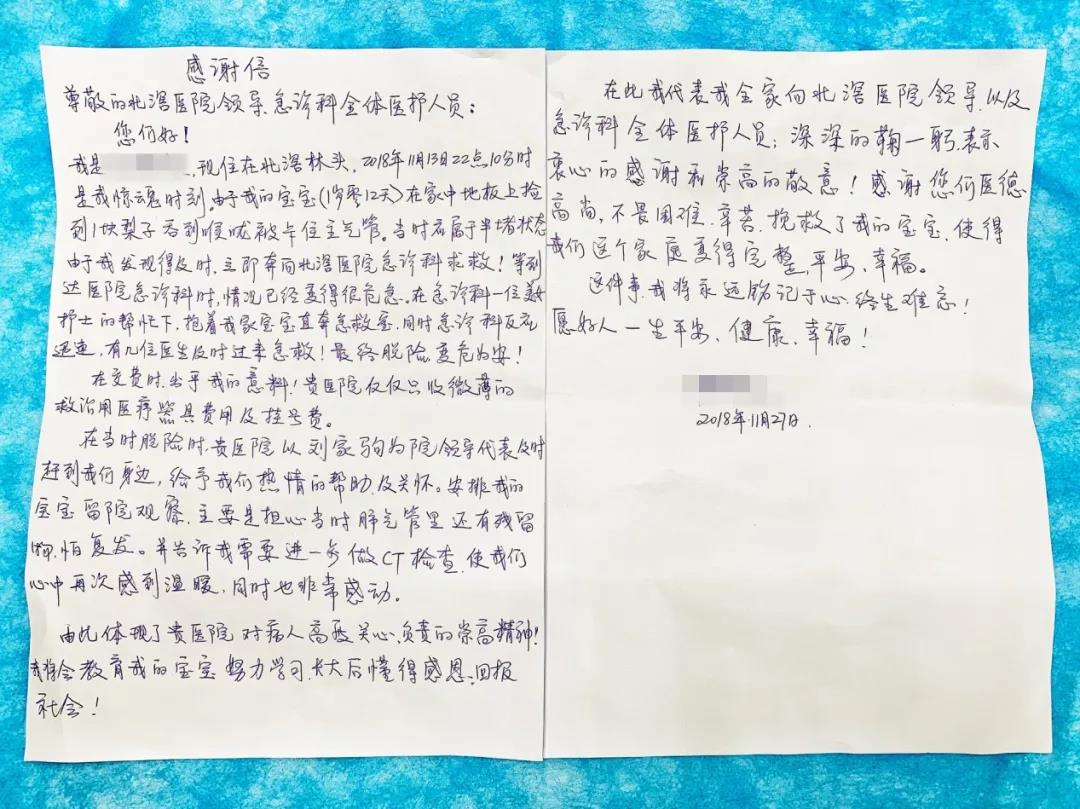 感谢信
尊敬的北滘医院领导、急诊科全体医护人员：
您们好！
我是，现住在北滘林头，2018年11月13日22点10分时
是我惊魂时刻。由于我的宝宝(1岁零12天)在家中地板上捡
到1块梨子吞到喉咙被卡住主气管。当时在属于半堵状态
由于我发现得及时，立即奔向北滘医院急诊科求救！等到
达医院急诊科时，情况已经变得很危急。在急诊科一位美女
护士的帮忙下，抱着我家宝宝直奔急救室，同时急诊科反应
迅速，有几位医生及时过来急救！最终脱险变危为安！
在交费时，出乎我的意料！贵医院仅仅只收微薄的
救治用医疗器具费用及挂号费。
在当时脱险时，贵医院以刘家驹为院领导代表及时
赶到我们身边，给予我们热情的帮助及关怀。安排我的
宝宝留院观察，主要是担心当时肺气管里还有残留
物，怕复发。并告诉我需要进一步做CT检查，使我们
心中再次感到温暖，同时也非常感动。
由此体现了贵医院对病人高度关心、负责的崇高精神！
我将会教育我的宝宝努力学习，长大后懂得感恩，回报
社会！
在此我代表我全家向北滘医院领导、以及
急诊科全体医护人员；深深的鞠一躬，表示
衷心的感谢和崇高的敬意！感谢您们医德
高尚，不畏困难、辛苦，挽救了我的宝宝，使得
我们这个家庭变得完整，平安、幸福。
这件事，我将永远铭记于心，终生难忘！
愿好人一生平安、健康、幸福！
2018年11月27日.